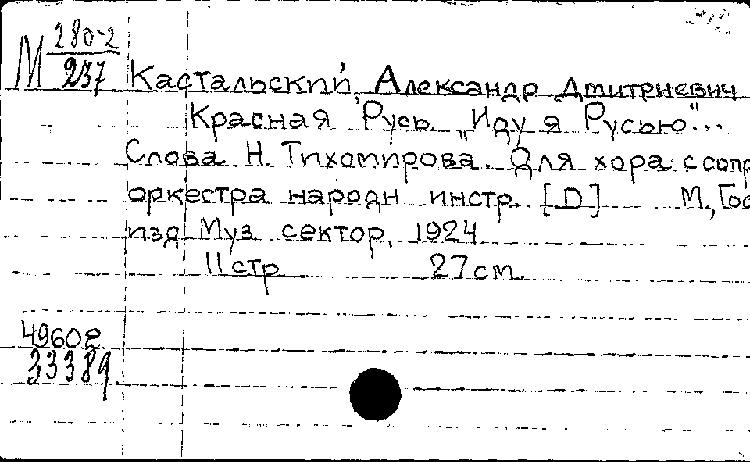 М 280-2
237
Кастальский, Александр Дмитриевич
Красная Русь. „Иду я Русью"...
Слова Н. Тихомирова. Для хора с сопр
оркестра народн инстр. [D] М., Гос
изд Муз сектор, 1924
11 стр 27 см.
49608
33389